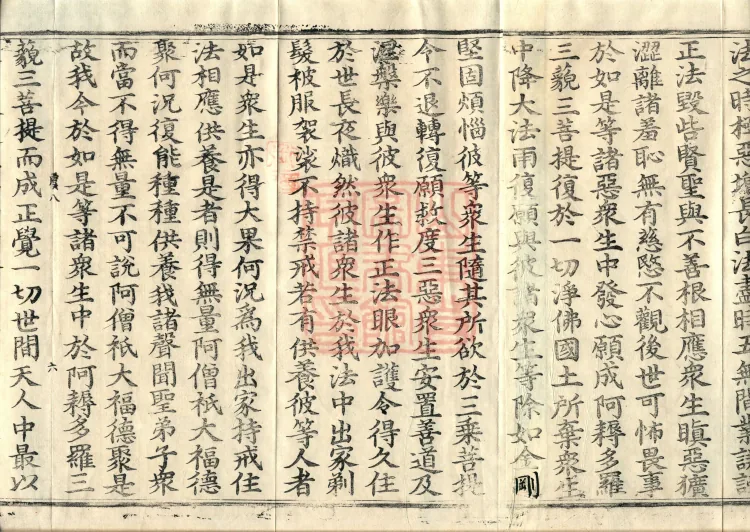 法之時極惡
正法毀呰賢聖與不善根相應衆生瞋惡獷
澀離諸羞恥無有慈愍不觀後世可怖畏事
於如是等諸惡衆生中發心願成阿耨多羅
三藐三菩提復於一切淨佛國土所棄衆生
中降大法雨復願與彼諸衆生等除如金剛
堅固煩惱彼等衆生隨其所欲於三乘菩提
今不退轉復願救度三惡衆生安置善道及
涅槃樂與彼衆生作正法眼加護令得久住
於世長夜熾然彼諸衆生於我法中出家剃
髮被服袈裟不持禁戒若有供養彼等人者
如是衆生亦得大果何況爲我出家持戒住
法相應供養是者則得無量阿僧祇大福德
聚何況復能種種供養我諸聲聞聖弟子衆
而當不得無量不可說阿僧祇大福德聚是
故我今於如是等諸衆生中於阿耨多羅三
八
六
藐三菩提而成正覺一切世間天人中最以